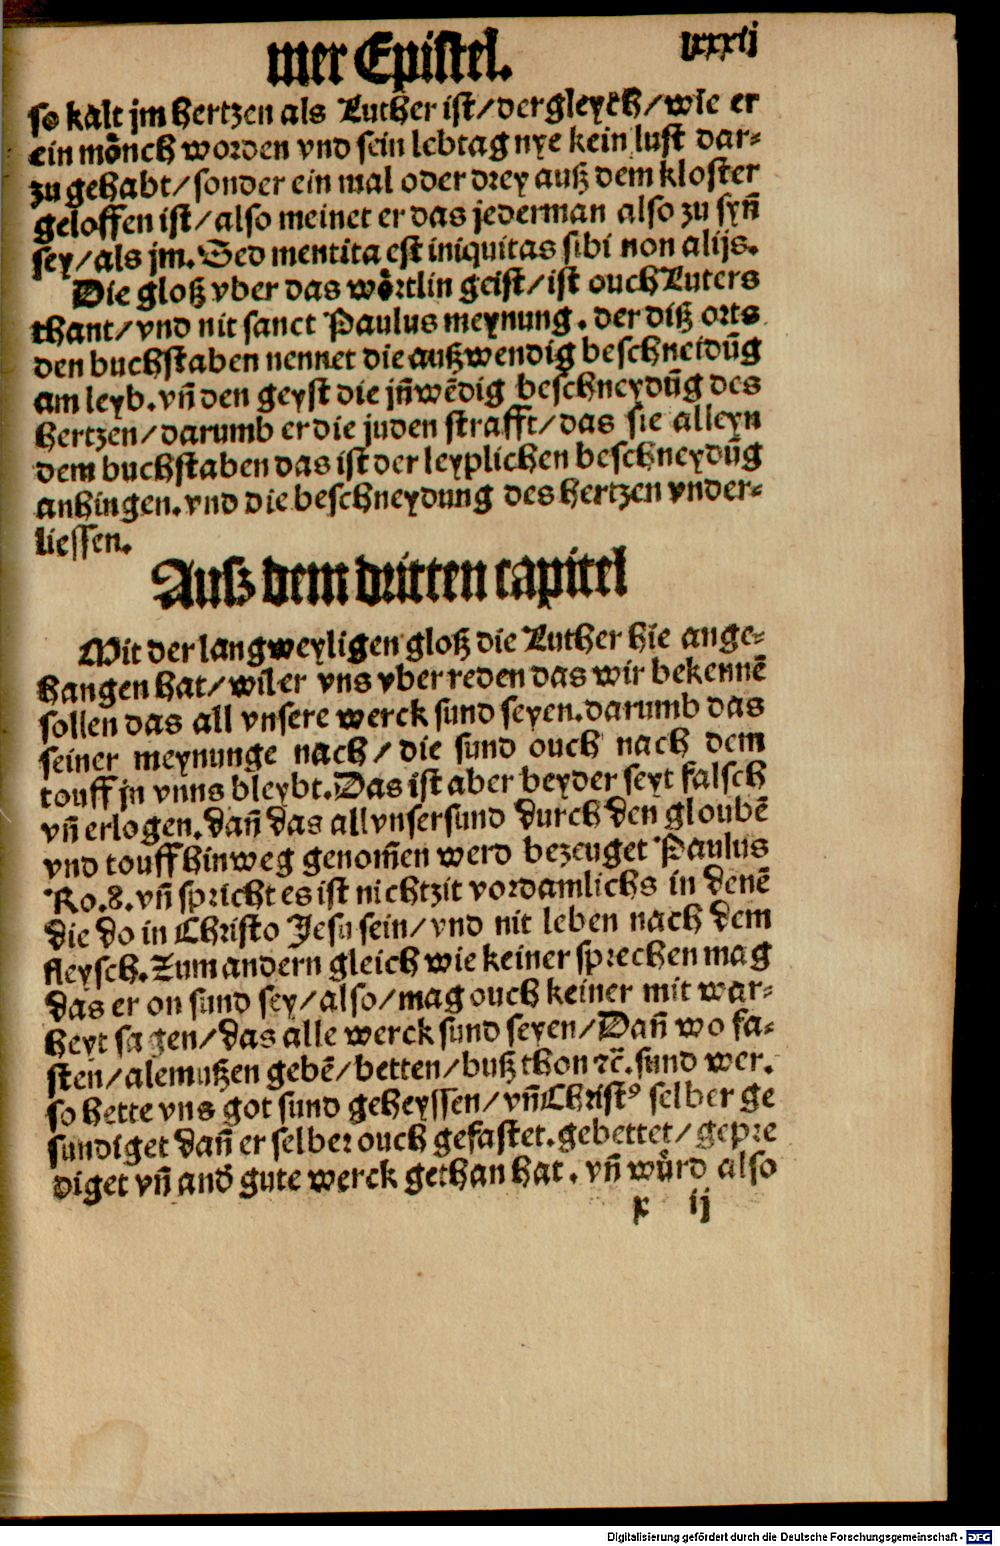 mer Epistel. lxxxij
so kalt jm hertzen als Luther ist/dergleych/wie er
ein mönch worden vnd sein lebtag nye kein lust dar⸗
zu gehabt/sonder ein mal oder drey auß dem kloster
geloffen ist/also meinet er das jederman also zu syn̄
sey/als jm. Sed mentita est iniquitas sibi non alijs.
Die gloß vber das wörtlin geist/ist ouch Luters
thant/vnd nit sanct Paulus meynung. der diß orts
den buchstaben nennet die außwendig beschneidūg
am leyb. vn̄ den geyst die jn̄wēdig beschneydūg des
hertzen/darumb er die juden strafft/das sie alleyn
dem buchstaben das ist der leyplichen beschneydūg
anhingen. vnd die beschneydung des hertzen vnder⸗
liessen.
Ausz dem dritten capitel
Mit der langweyligen gloß die Luther hie ange⸗
hangen hat/wil er vns vberreden das wir bekennē
sollen das all vnsere werck sund seyen. darumb das
seiner meynunge nach/die sund ouch nach dem
touff jn vnns bleybt. Das ist aber beyder seyt falsch
vn̄ erlogen. dan̄ das all vnser sund durch den gloubē
vnd touff hinweg genom̄en werd bezeuget Paulus
Ro.8. vn̄ spricht es ist nichtzit vordamlichs in denē
die do in Christo Jesu sein/vnd nit leben nach dem
fleysch. Zum andern gleich wie keiner sprechen mag
das er on sund sey/also/mag ouch keiner mit war⸗
heyt sagen/das alle werck sund seyen/Dan̄ wo fa⸗
sten/alemußen gebē/betten/buß thon ⁊c̄. sund wer.
so hette vns got sund geheyssen/vn̄ Christꝰ selber ge
sundiget dan̄ er selber ouch gefastet. gebettet/gepre
diget vn̄ and̄ gute werck gethan hat. vn̄ würd also
x ij
Digitalisierung gefördert durch die Deutsche Forschungsgemeinschaft - DFG